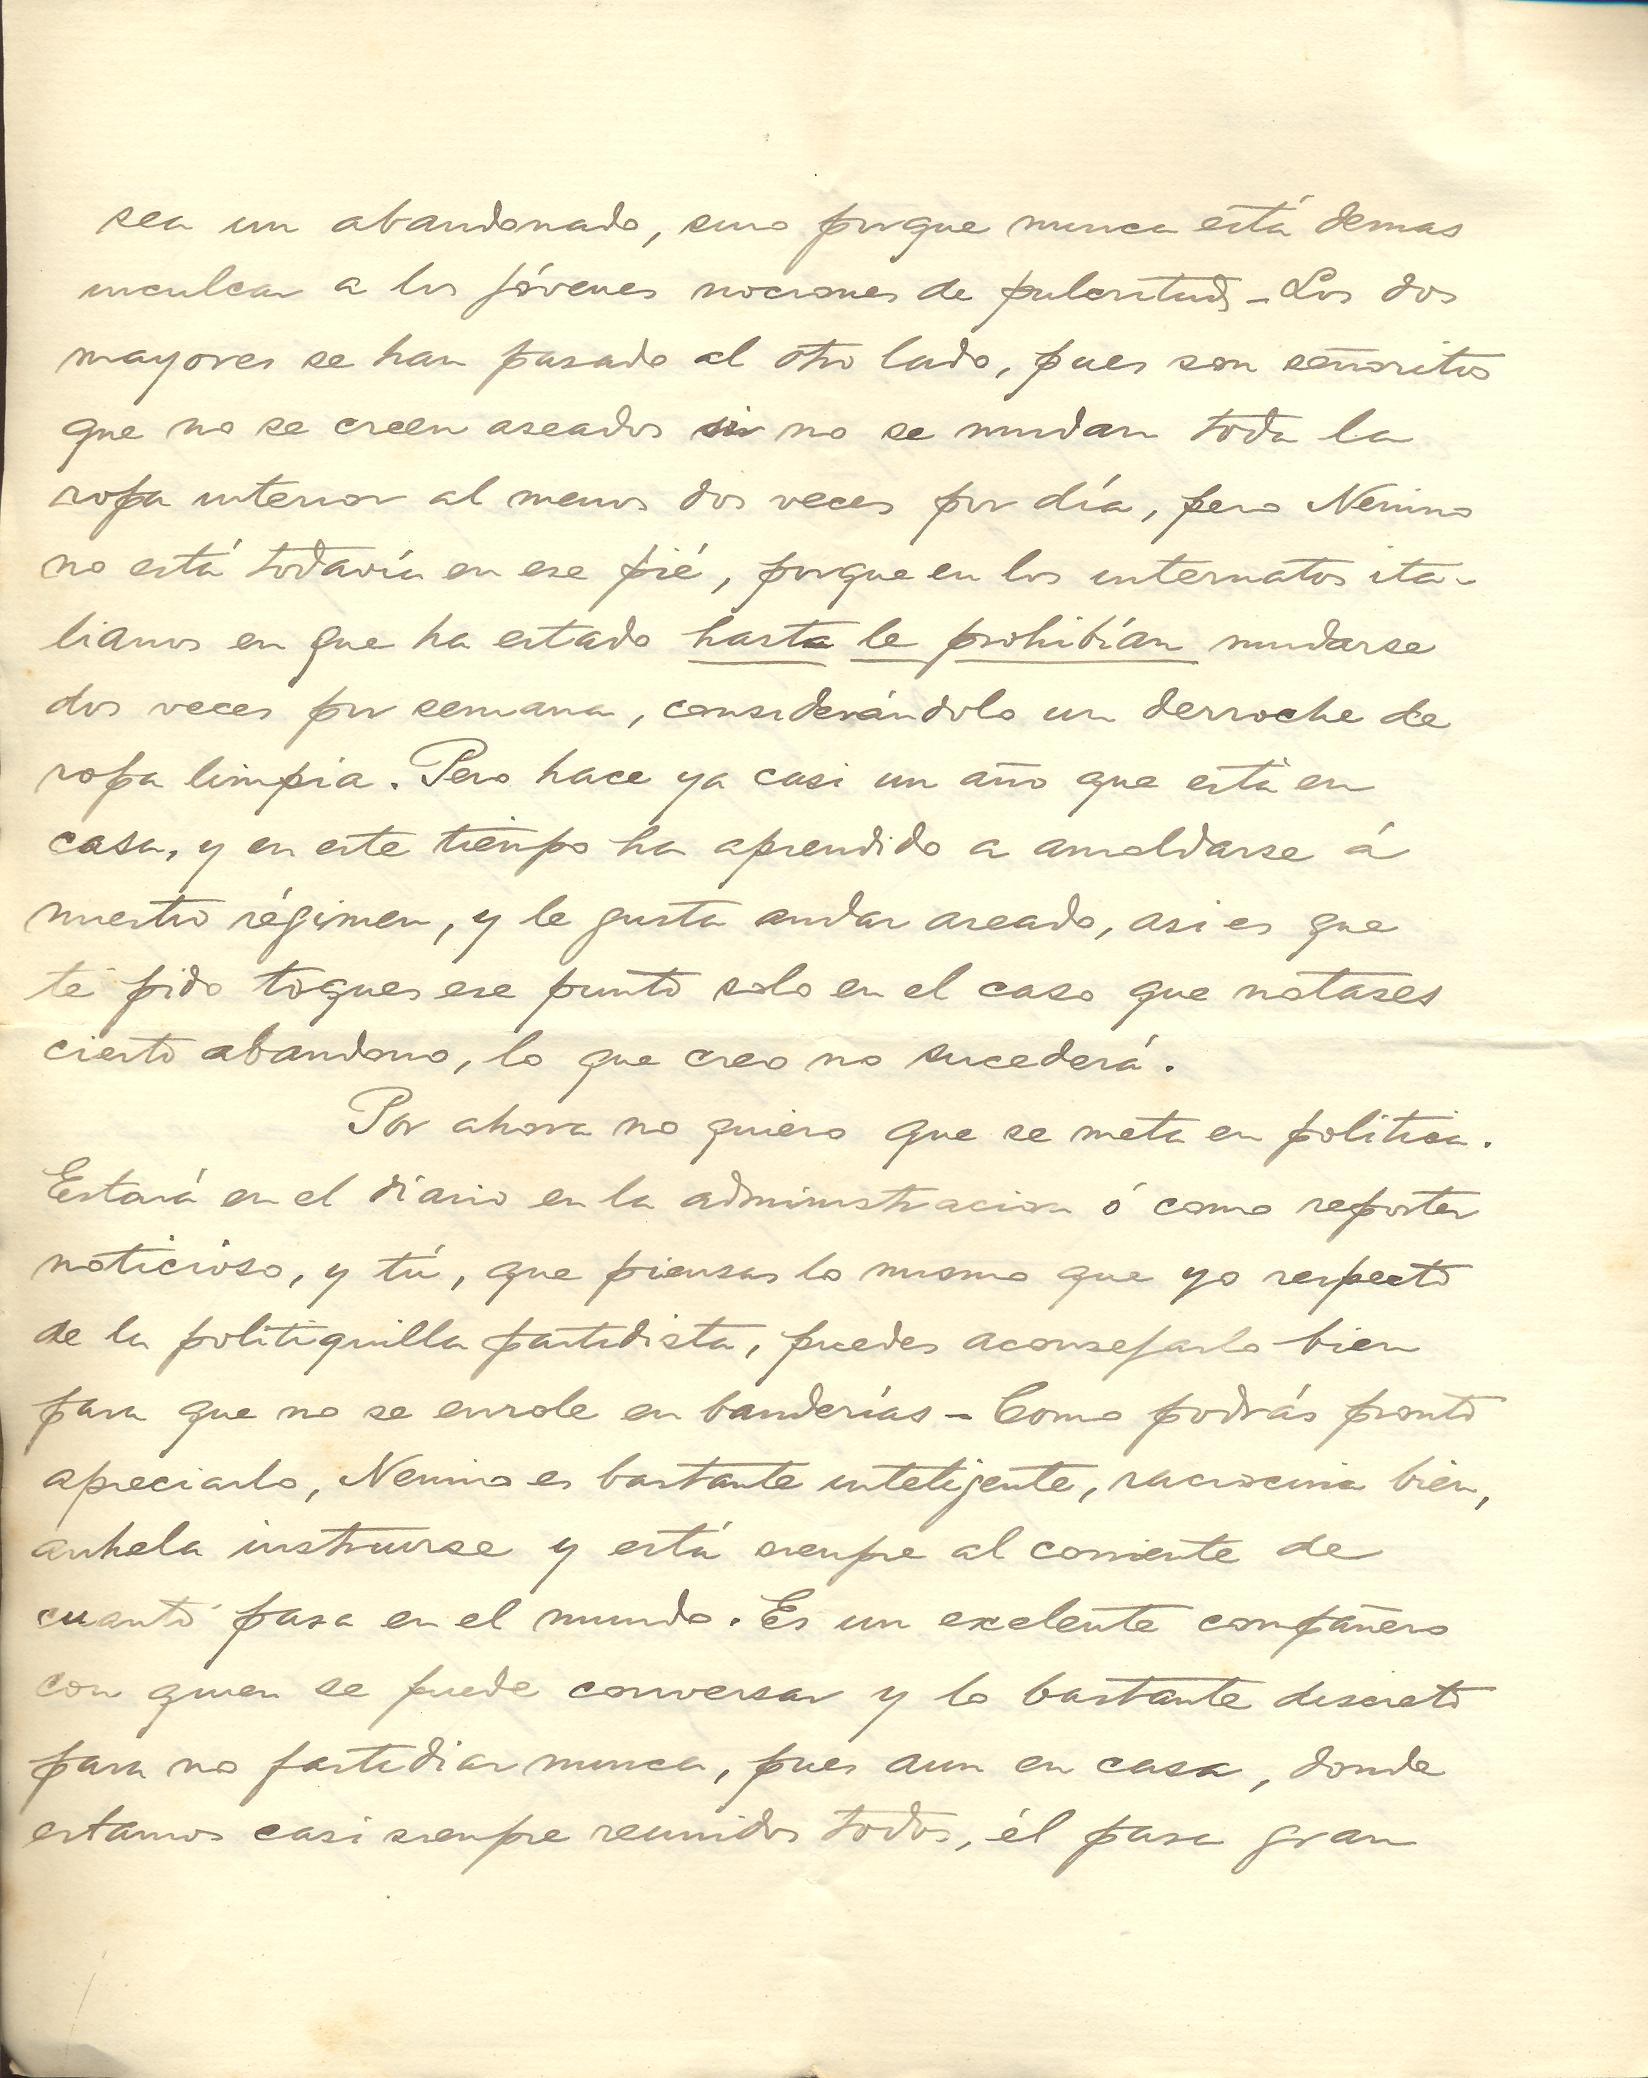 sea un abandonado, sino porque nunca está demas
inculcar a los jóvenes nociones de pulcritud – Los dos
mayores se han pasado al otro lado, pues son señoritos
que no se creen aseados si no se mudan toda la
ropa interior al menos dos veces por día, pero Nenino
no está todavía en ese pié, porque en los internatos ita-
lianos en que ha estado hasta le prohibían mudarse
dos veces por semana, considerándolo un derroche de
ropa limpia. Pero hace ya casi un año que está en
casa, y en este tiempo ha aprendido a amoldarse á
nuestro régimen, y le gusta andar aseado, asi es que
te pido toques ese punto solo en el caso que notases
cierto abandono, lo que creo no sucederá.
Por ahora no quiero que se meta en politica.
Estará en el diario en la administracion ó como reporter
noticioso, y tú, que piensas lo mismo que yo respecto
de la politiquilla partidista, puedes aconsejarlo bien
para que no se enrole en banderías – Como podrás pronto
apreciarlo, Nenino es bastante inteligente, raciocina bien,
anhela instruirse y está siempre al corriente de
cuanto pasa en el mundo. Es un exelente compañero
con quien se puede conversar y lo bastante discreto
para no fastidiar nunca, pues aun en casa, donde
estamos casi siempre reunidos todos, él pasa gran